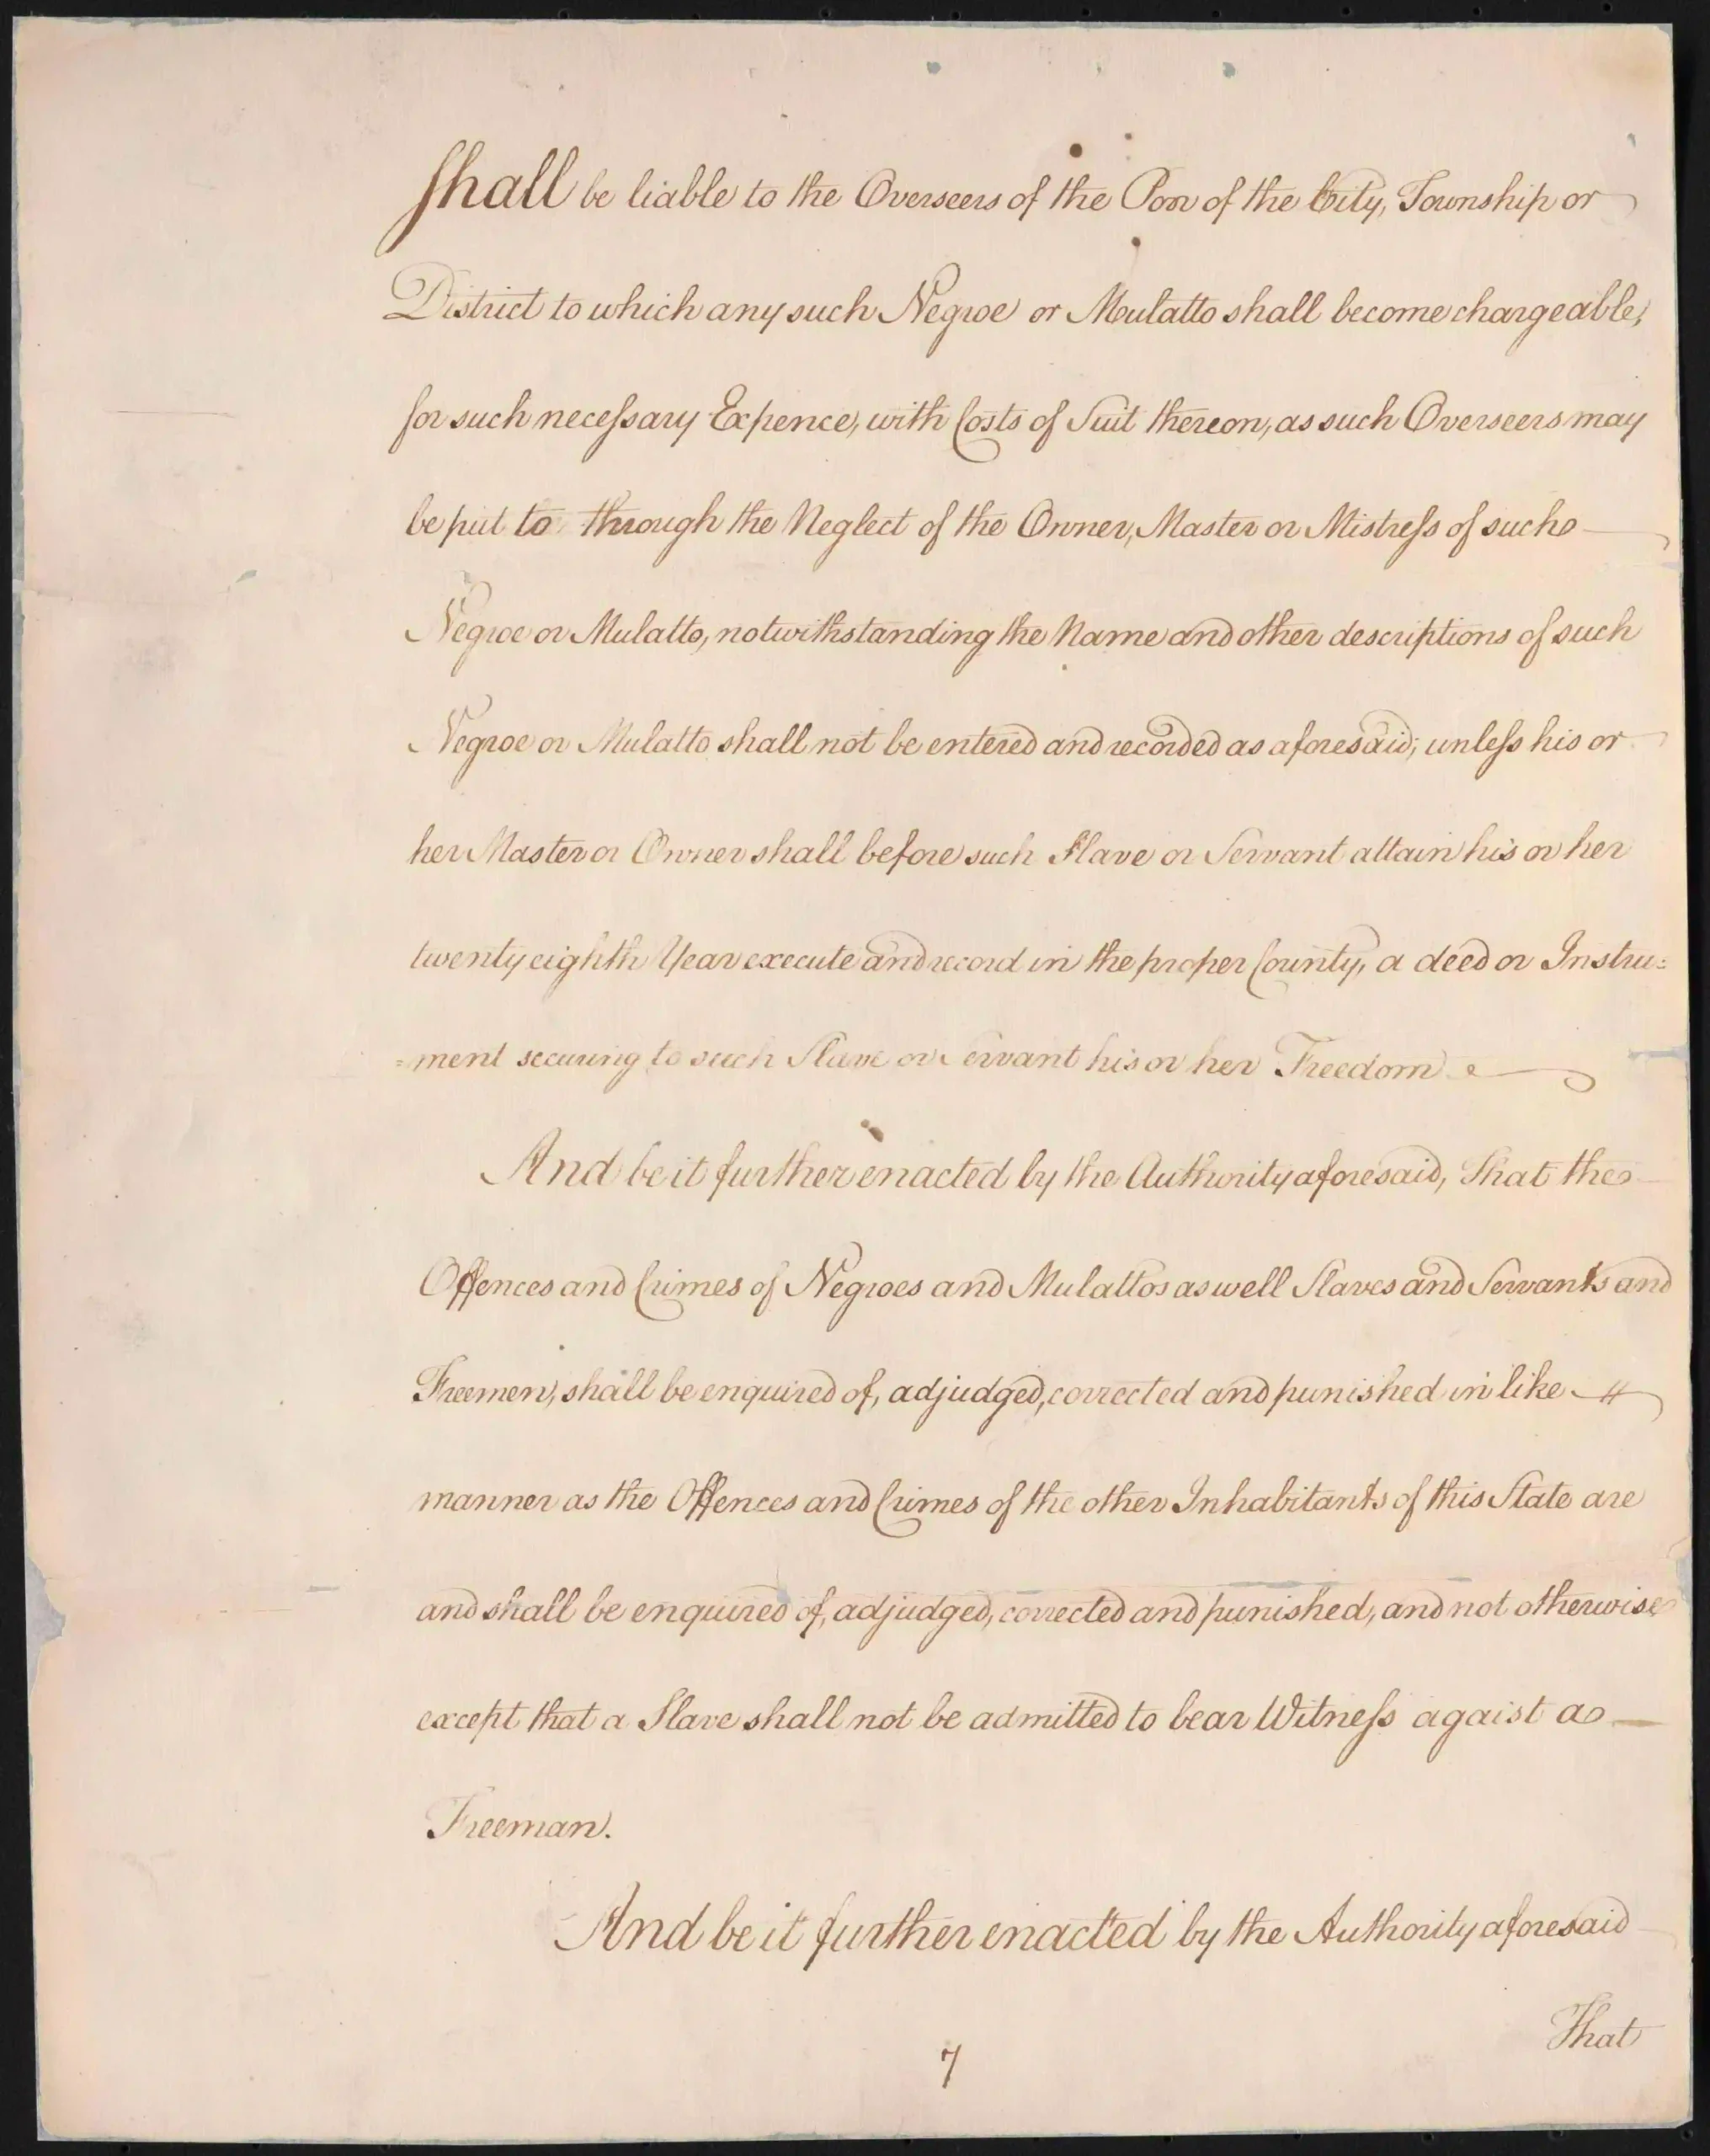 Shall be liable to the Overseers of the Poor of the City, Township or
District to which any such Negroe or Mulatto shall become chargeable,
for such necessary Expence, with Costs of Suit thereon, as such Overseers may
be put to through the Neglect of the Owner, Master or Mistress of such
Negroe or Mulatto, notwithstanding the Name and other descriptions of such
Negroe or Mulatto shall not be entered and recorded as aforesaid; unless his or
her Master or Owner shall before such Slave or Servant attain his or her
twenty eighth Year execute and record in the proper County, a deed or Instru=
=ment securing to such Slave or Servant his or her Freedom
And be it further enacted by the Authority aforesaid, That the
Offences and Crimes of Negroes and Mulattos as well Slaves and Servants and
Freemen, shall be enquired of, adjudged, corrected and punished in like
manner as the Offences and Crimes of the other Inhabitants of this State are
and shall be enquired of, adjudged, corrected and punished, and not otherwise
except that a Slave shall not be admitted to bear Witness agaist a
Freeman.
And be it further enacted by the Authority aforesaid
That
7